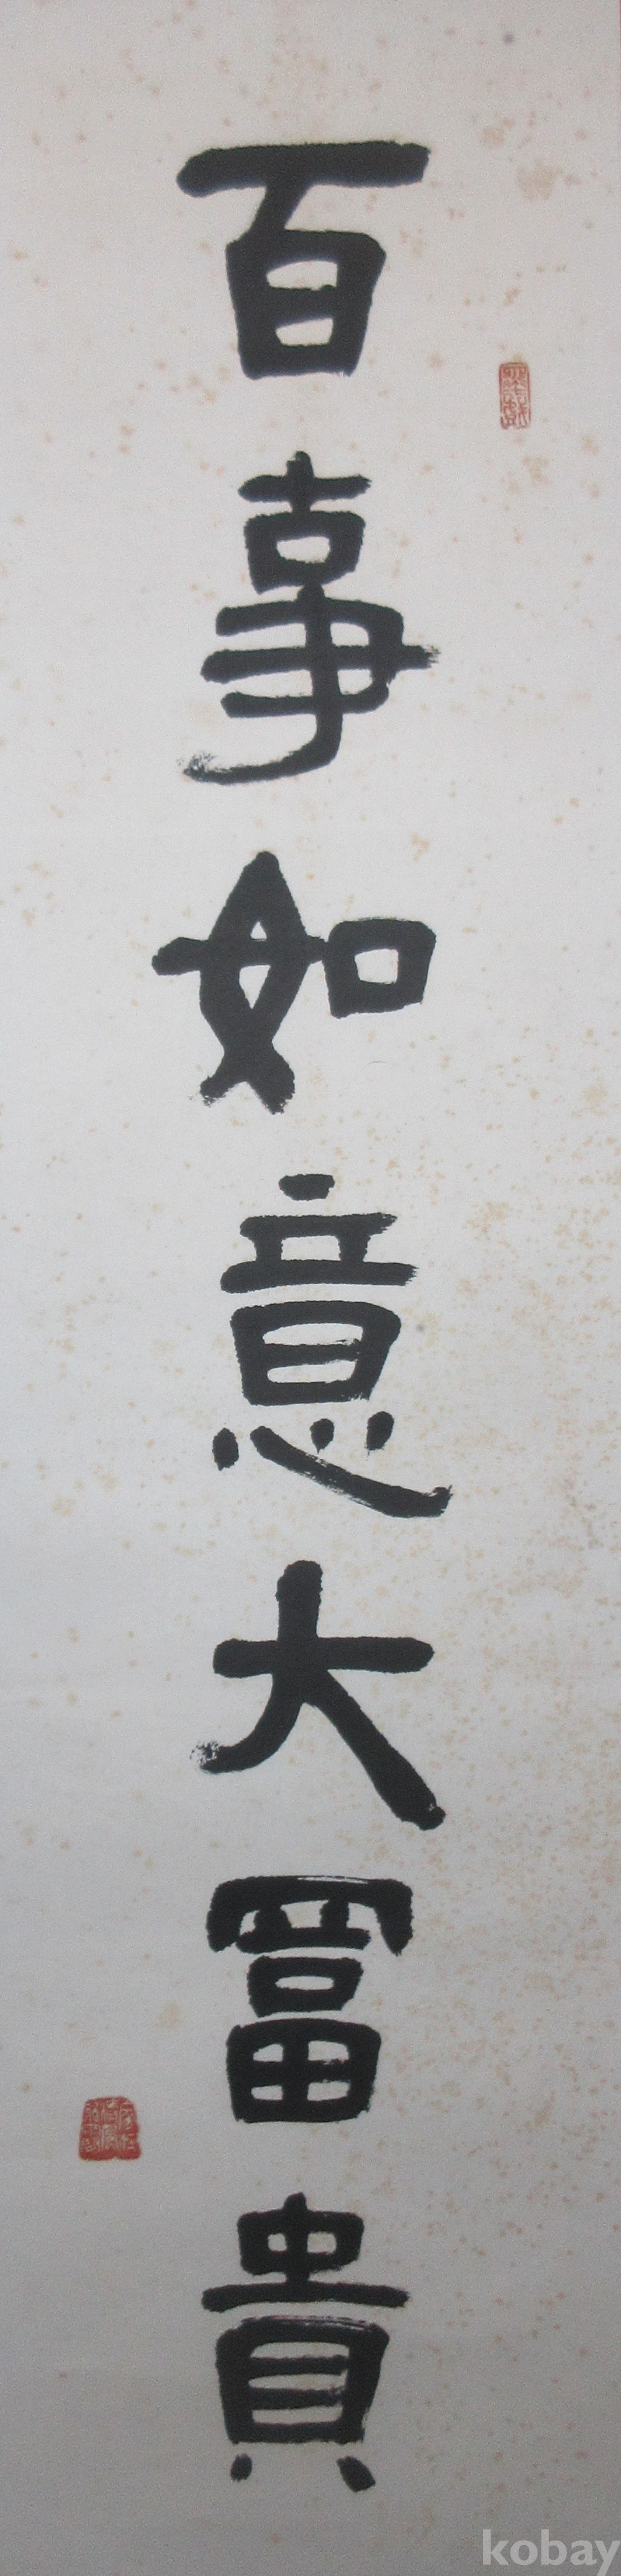 百事如意大富貴
kobay